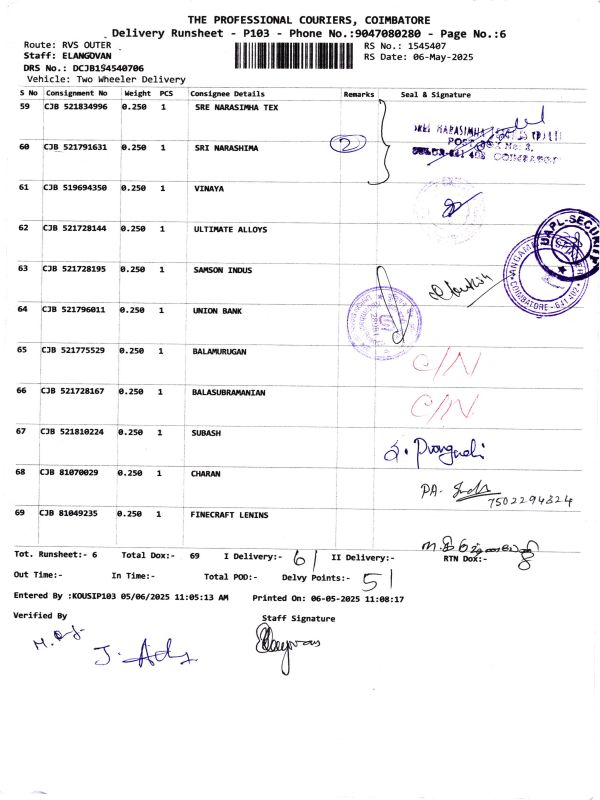 THE PROFESSIONAL COURIERS, COIMBATORE
Delivery Runsheet - P103 - Phone No.:9047080280 - Page No.:6
Route: RVS OUTER RS No.: 1545407
Staff: ELANGOVAN RS Date: 06-May-2025
DRS No.: DCJB154540706
Vehicle: Two Wheeler Delivery
S No Consignment No Weight PCS Consignee Details Remarks Seal & Signature
59 CJB 521834996 0.250 1 SRE NARASIMHA TEX
60 CJB 521791631 0.250 1 SRI NARASHIMA 2
61 CJB 519694350 0.250 1 VINAYA
62 CJB 521728144 0.250 1 ULTIMATE ALLOYS
UAPL-SECURITY
63 CJB 521728195 0.250 1 SAMSON INDUS
COIMBATORE - 641 402
64 CJB 521796011 0.250 1 UNION BANK
65 CJB 521775529 0.250 1 BALAMURUGAN C/N
66 CJB 521728167 0.250 1 BALASUBRAMANIAN C/N
67 CJB 521810224 0.250 1 SUBASH
68 CJB 81070029 0.250 1 CHARAN PA-
7502294324
69 CJB 81049235 0.250 1 FINECRAFT LENINS
Tot. Runsheet:- 6 Total Dox:- 69 I Delivery:- 61 II Delivery:- RTN Dox:-
Out Time:- In Time:- Total POD:- Delvy Points:- 51
Entered By :KOUSIP103 05/06/2025 11:05:13 AM Printed On: 06-05-2025 11:08:17
Verified By Staff Signature